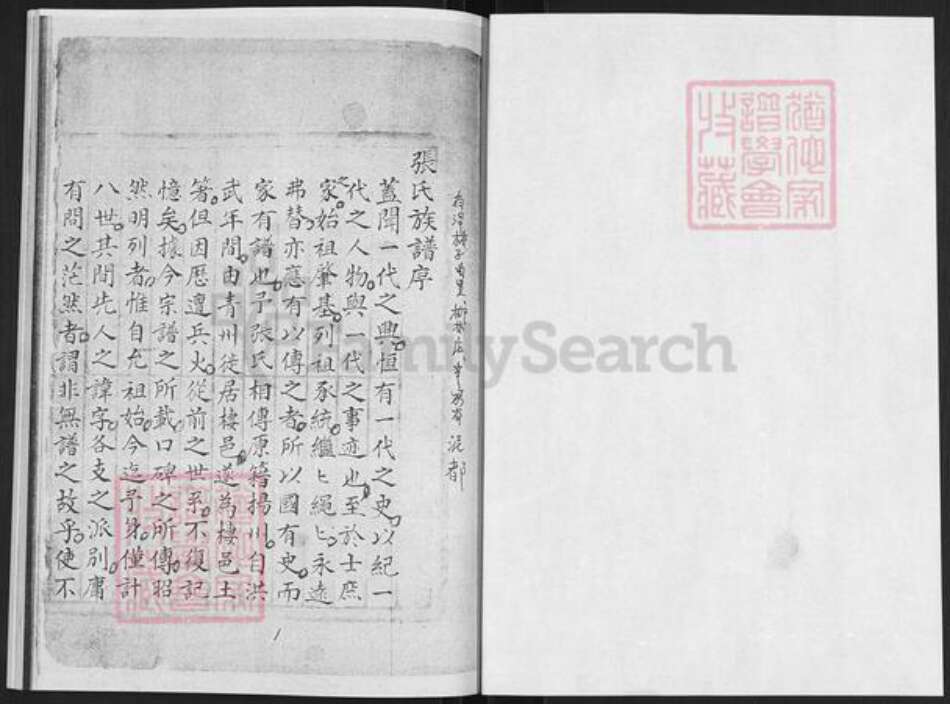 猶他家
譜學會
收藏
張氏族譜序
蓋聞一代之興恒有一代之史以紀一
代之人物與一代之事迹也至於士庶之
家始祖肇基列祖承統繼〻繩〻永遠
弗替亦應有以傳之者所以國有史而
家有譜也予張氏相傳原籍揚州自洪
武年間由青州徙居棲邑遂為棲邑土
箸但因歷遭兵火從前之世系不復記
憶矣據今宗譜之所載口碑之所傳昭
然明列者惟自允祖始今迄予身僅計
八世其間先人之諱字各支之派別庸
有問之茫然者謂非無譜之故乎使不
1
FamilySearch